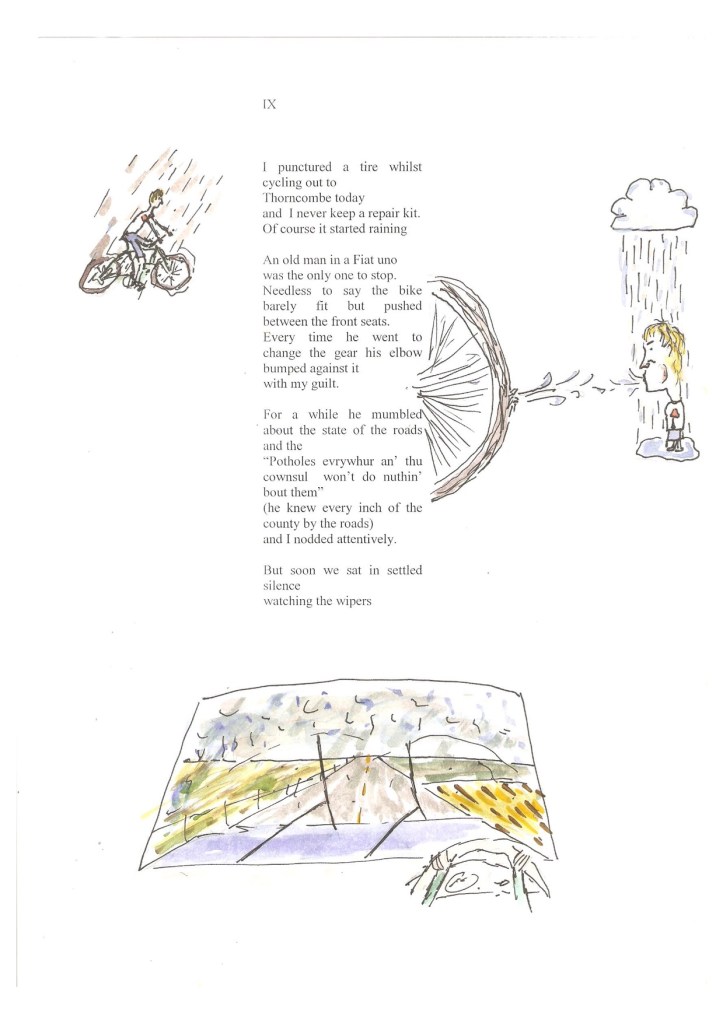 IX
I punctured a tire whilst
cycling out to
Thorncombe today
and I never keep a repair kit.
Of course it started raining
An old man in a Fiat uno
was the only one to stop.
Needless to say the bike
barely fit but pushed
between the front seats.
Every time he went to
change the gear his elbow
bumped against it
with my guilt.
For a while he mumbled
about the state of the roads
and the
“Potholes evrywhur an’ thu
cownsul won’t do nuthin’
bout them”
(he knew every inch of the
county by the roads)
and I nodded attentively.
But soon we sat in settled
silence
watching the wipers